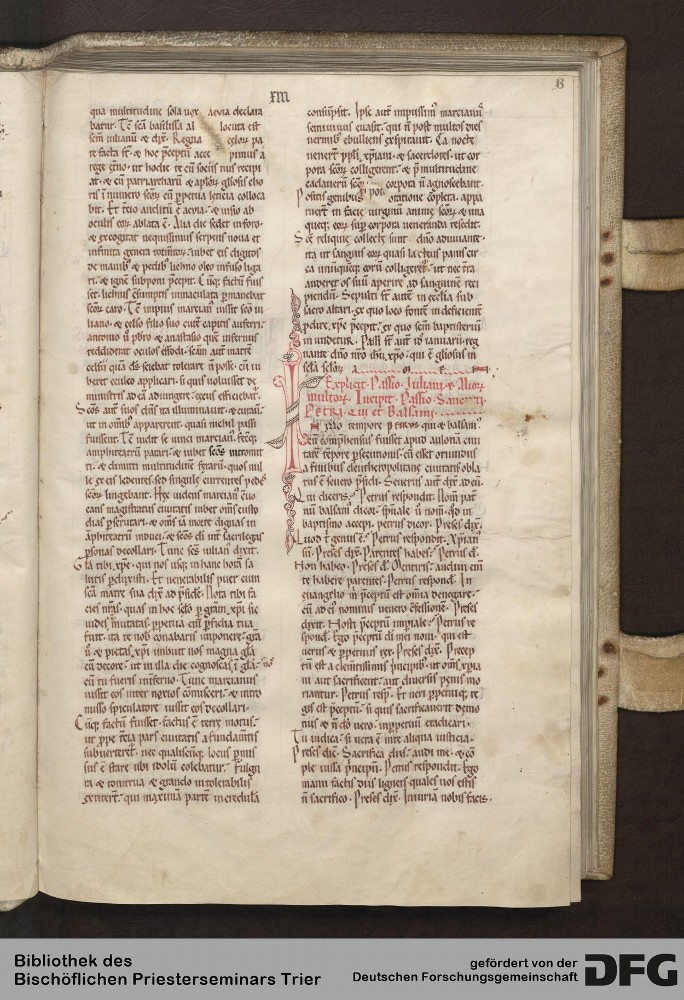 XIII
B
qua multitudine sola uox aeuia declara
batur. Tc̄ sc̄a basilissa al locuta est
sc̄m iulianū & dix̄. Regna celor̄ pa
te facta st̄. & hoc p̄ceptū acce pimus a
rege et̄no. ut hodie te cū sociis tuis recipi
at. & cū patriarcharū & aplor̄ gl̄iosis cho
ris ī numero sc̄or̄ cū p̄petua leticia colloca
bit. Et tcio auditū ē aeuia. & uisio ab
oculis eor̄ ablata ē. Alia die sedet in foro.
& excogitat nequissimus serpens noua et
infinita genera tormētor̄. iubet eis digitos
de manib̄ & pedib̄ ligno oleo infuso liga
ri. & ignē subponi p̄cepit. Cūq; factū fuis
set. lignis c̄sumptis inmaculata p̄manebat
sc̄or̄ caro. Tc̄ impius marcian' iussit sc̄o iu
liano. & celso filio suo cutē capitis auferri.
antonio ū p̄bro & anastasio quē infernus
reddiderat oculos effodi. sc̄am aut matrē
celsii quā ds̄ sciebat tolerare ñ posse. cū iu
beret eculeo applicari. si quis uoluisset de
ministris ad eā adiungere. cecus efficiebat.
Sc̄os aut suos dn̄s ita illuminauit. & curauit.
ut in om̄ib; apparerent. quasi nichil passi
fuissent. Tc̄ uidit se uinci marcian'. fecitq;
amphiteatrū parari. & iubet sc̄os intromit
ti. & dimitti multitudinē ferarū. quos nul
le ex eis ledentes. sed singule currentes pedes
sc̄or̄ lingebant. Hęc uidens marcian' euo
cans magistratus ciuitatis iubet om̄s custo
dias p̄scrutari. & om̄s ū morte dignas in
āphiteatrū induci. & sc̄os dī int̄ sacrilegas
p̄sonas decollari. Tunc sc̄s iulian' dixit.
Gl̄a tibi xp̄e. qui nos usq; in hanc horā sa
lutis p̄duxisti. Et uenerabilis puer cum
sc̄a matre sua dix̄ ad p̄sidē. Nota tibi fa
cies nr̄as. quas in hoc sc̄lo p̄ gr̄am xp̄i sic
uides īmutatas. p̄petua enī p̄ficha tua
fuit. ita te nob̄ conabaris imponere. gr̄a
ū & pietas xp̄i imbuit nos magna gl̄a
cū decore. ut in illa die cognoscas ī gl̄a nos
cū tu fueris in īferno. Tunc marcianus
iussit eos inter noxios cōmisceri. & intro
misso spiculatore iussit eos decollari.
Cūq; factū fuisset. factus ē terrę motus.
ut p̄pe tc̄ia pars ciuitatis a fundam̄tis
subuerteret. nec qualiscūq; locus p̄mis
sus ē stare ubi idolū colebatur. Fulgu
ra & tonitrua & grando intolerabilis
extiterīt. qui maximā partē incredulā
consūpsit. Ipse aut impiissim' marcian'
semiuiuus euasit. qui ñ post multos dies
uermib' ebulliens exspirauit. Ea nocte
uenerī ppli xp̄iani. & sacerdotes. ut cor
pora sc̄or̄ colligerent. & p̄ multitudine
cadauerū sc̄or̄ corpora ñ agnoscebant.
Positis genibus post orationē cōpleta. appa
ruerīt in facie uirginū anime sc̄or̄. & una
queq; eor̄ sup̄ corpora ueneranda resedit.
Sc̄e reliquię collecte sunt dn̄o adiuuante.
ita ut sanguis eor̄ quasi lacteus panis cir
ca unūquēq; eorū colligeret. ut nec tra
anderet os suū aperire ad sanguinē reci
piendū. Sepulti st̄ autē in ecclīa sub
sacro altari. ex quo loco fontē in deficientē
p̄dire xp̄c p̄cepit. ex quo sc̄m baptisteriū
in undetur. Passi st̄ aut id' ianuarii. reg
nante dn̄o nr̄o ihū xp̄o. qui ē gl̄iosus in
sc̄la sc̄lor̄ a m e n
Explicit Passio Iuliani & Alior̄
multor̄. Incipit Passio Sanctor̄
Petri qui et Balsami
In illo tempore petrus qui & balsam'
cū comp̄hensus fuisset apud aulonā ciui
tatē tēpore p̄secutionis. cū esset oriundus
a finibus eleutheropolitanę ciuitatis obla
tus ē seuero p̄sidi. Seuerus aut dix̄ ad eū.
Qui diceris. Petrus respondit. Nom̄ pat̄
nū balsam' dicor. sp̄nale ū nom̄. qd̄ in
baptismo accepi. petrus dicor. Preses dix̄.
Quod ī genus ē. Petrus respondit. Xp̄ian'
sū. Preses dix̄. Parentes habes. Petrus d̄.
Non habeo. Preses d̄. Mentiris. audiui enī
te habere parentes. Petrus respond̄. In
euangelio m̄ p̄ceptū est om̄ia denegare.
cū ad ei' nominis uenero c̄fessionē. Preses
dixit. Nosti p̄ceptū imp̄iale. Petrus re
spond̄. Ego p̄ceptū dī mei noui. qui est
uerus & p̄petuus rex. Preses dix̄. Precep
tū est a clem̄tissimis p̄ncipib; ut om̄s xp̄ia
ni aut sacrificent. aut diuersis penis mo
riantur. Petrus resp̄. Et ueri p̄petuiq; re
gis est p̄ceptū. si quis sacrificauerit demo
niis & ñ dō uero. inp̄petuū eradicari.
Tu iudica. si uera ē inte aliqua iusticia.
Preses dix̄. Sacrifica diis. audi me. & cō
ple iussa p̄ncipū. Petrus respondit. Ego
manu factis diis ligneis quales uos estis
ñ sacrifico. Preses dix̄. Iniuriā nobis facis.
Bibliothek des
Bischöflichen Priesterseminars Trier
gefördert von der
Deutschen Forschungsgemeinschaft
DFG